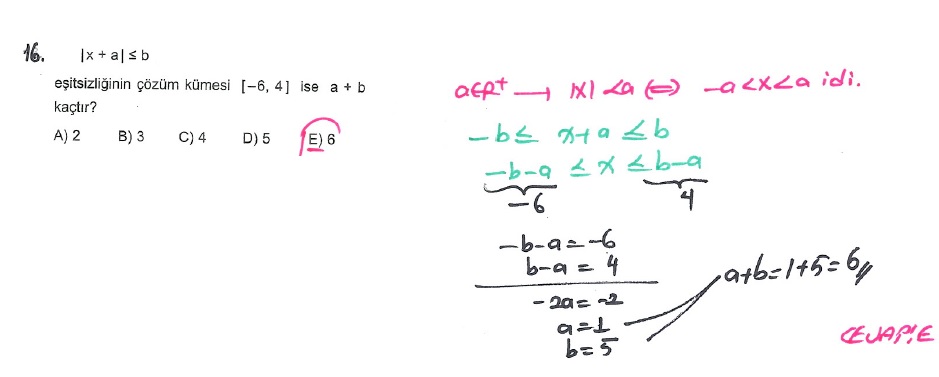 16. |x + a| ≤ b
eşitsizliğinin çözüm kümesi [−6, 4] ise a + b
kaçtır?
A) 2 B) 3 C) 4 D) 5 E) 6
a∈R⁺ → |x| < a ⟺ −a < x < a idi.
−b ≤ x+a ≤ b
−b−a ≤ x ≤ b−a
−6 4
−b−a = −6
b−a = 4
−2a = −2
a = 1
b = 5
a+b = 1+5 = 6//
CEVAP: E